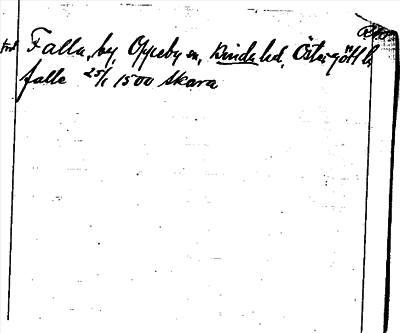 Falla, by, Oppeby sn, Kinda hd, Östergötl
falle 25/1 1500 Skara